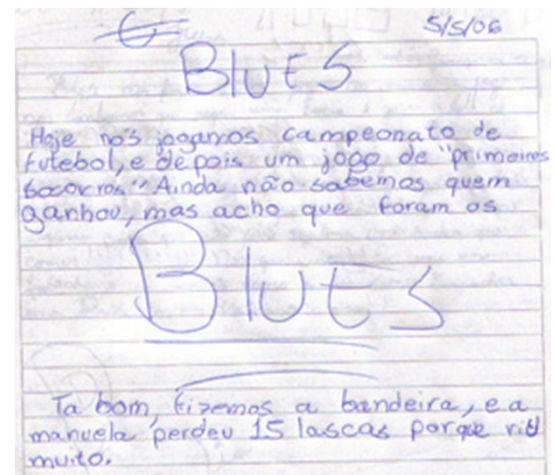 5/5/06
BlutS
Hoje nós jogamos campeonato de
futebol, e depois um jogo de "primeiros
socorros" Ainda não sabemos quem
ganhou, mas acho que foram os
BlutS
Ta bom, fizemos a bandeira, e a
manuela perdeu 15 lascas porque riu
muito.